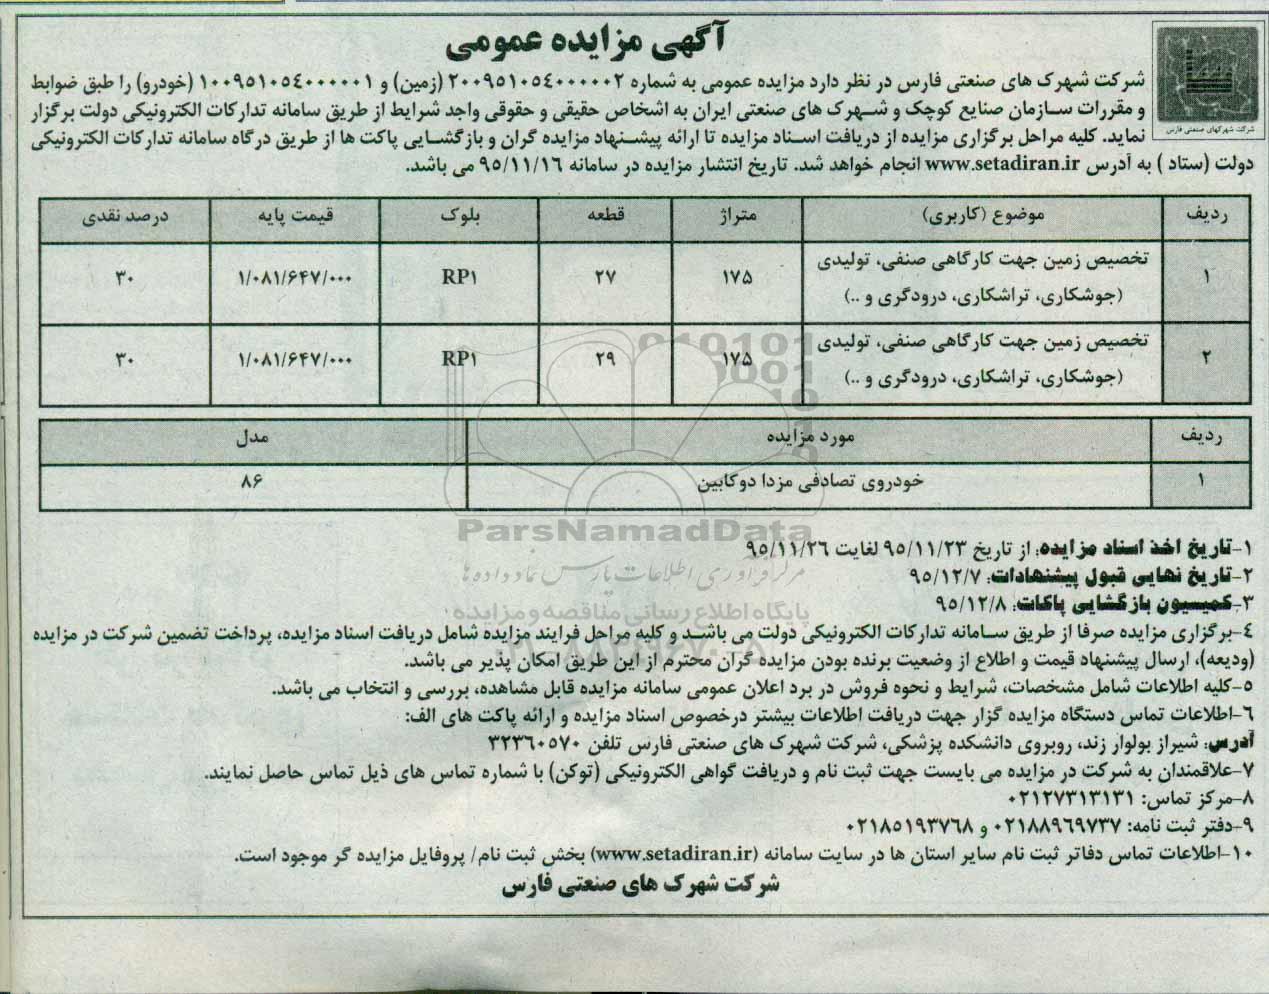 آگهی مزایده عمومی
شرکت شهرکهای صنعتی فارس
شرکت شهرک های صنعتی فارس در نظر دارد مزایده عمومی به شماره ۲۰۰۹۵۱۰۵٤۰۰۰۰۰۲ (زمین) و ۱۰۰۹۵۱۰۵٤۰۰۰۰۰۱ (خودرو) را طبق ضوابط
و مقررات سازمان صنایع کوچک و شهرک های صنعتی ایران به اشخاص حقیقی و حقوقی واجد شرایط از طریق سامانه تدارکات الکترونیکی دولت برگزار
نماید. کلیه مراحل برگزاری مزایده از دریافت اسناد مزایده تا ارائه پیشنهاد مزایده گران و بازگشایی پاکت ها از طریق درگاه سامانه تدارکات الکترونیکی
دولت (ستاد ) به آدرس www.setadiran.ir انجام خواهد شد. تاریخ انتشار مزایده در سامانه ۹۵/۱۱/۱۶ می باشد.
ردیف موضوع (کاربری) متراژ قطعه بلوک قیمت پایه درصد نقدی
۱ تخصیص زمین جهت کارگاهی صنفی، تولیدی ۱۷۵ ۲۷ RP۱ ۱/۰۸۱/۶۴۷/۰۰۰ ۳۰
(جوشکاری، تراشکاری، درودگری و ..)
۲ تخصیص زمین جهت کارگاهی صنفی، تولیدی ۱۷۵ ۲۹ RP۱ ۱/۰۸۱/۶۴۷/۰۰۰ ۳۰
(جوشکاری، تراشکاری، درودگری و ..)
ردیف مورد مزایده مدل
۱ خودروی تصادفی مزدا دوکابین ۸۶
ParsNamadData
مرکز فرآوری اطلاعات پارس نماد داده ها
پایگاه اطلاع رسانی مناقصه و مزایده
۱-تاریخ اخذ اسناد مزایده: از تاریخ ۹۵/۱۱/۲۳ لغایت ۹۵/۱۱/۲۶
۲-تاریخ نهایی قبول پیشنهادات: ۹۵/۱۲/۷
۳-کمیسیون بازگشایی پاکات: ۹۵/۱۲/۸
٤-برگزاری مزایده صرفا از طریق سامانه تدارکات الکترونیکی دولت می باشد و کلیه مراحل فرایند مزایده شامل دریافت اسناد مزایده، پرداخت تضمین شرکت در مزایده
(ودیعه)، ارسال پیشنهاد قیمت و اطلاع از وضعیت برنده بودن مزایده گران محترم از این طریق امکان پذیر می باشد.
۵-کلیه اطلاعات شامل مشخصات، شرایط و نحوه فروش در برد اعلان عمومی سامانه مزایده قابل مشاهده، بررسی و انتخاب می باشد.
۶-اطلاعات تماس دستگاه مزایده گزار جهت دریافت اطلاعات بیشتر درخصوص اسناد مزایده و ارائه پاکت های الف:
آدرس: شیراز بولوار زند، روبروی دانشکده پزشکی، شرکت شهرک های صنعتی فارس تلفن ۳۲۳٦۰۵۷۰
۷-علاقمندان به شرکت در مزایده می بایست جهت ثبت نام و دریافت گواهی الکترونیکی (توکن) با شماره تماس های ذیل تماس حاصل نمایند.
۸-مرکز تماس: ۰۲۱۲۷۳۱۳۱۳۱
۹-دفتر ثبت نامه: ۰۲۱۸۸۹٦۹۷۳۷ و ۰۲۱۸۵۱۹۳۷٦۸
۱۰-اطلاعات تماس دفاتر ثبت نام سایر استان ها در سایت سامانه (www.setadiran.ir) بخش ثبت نام/ پروفایل مزایده گر موجود است.
شرکت شهرک های صنعتی فارس